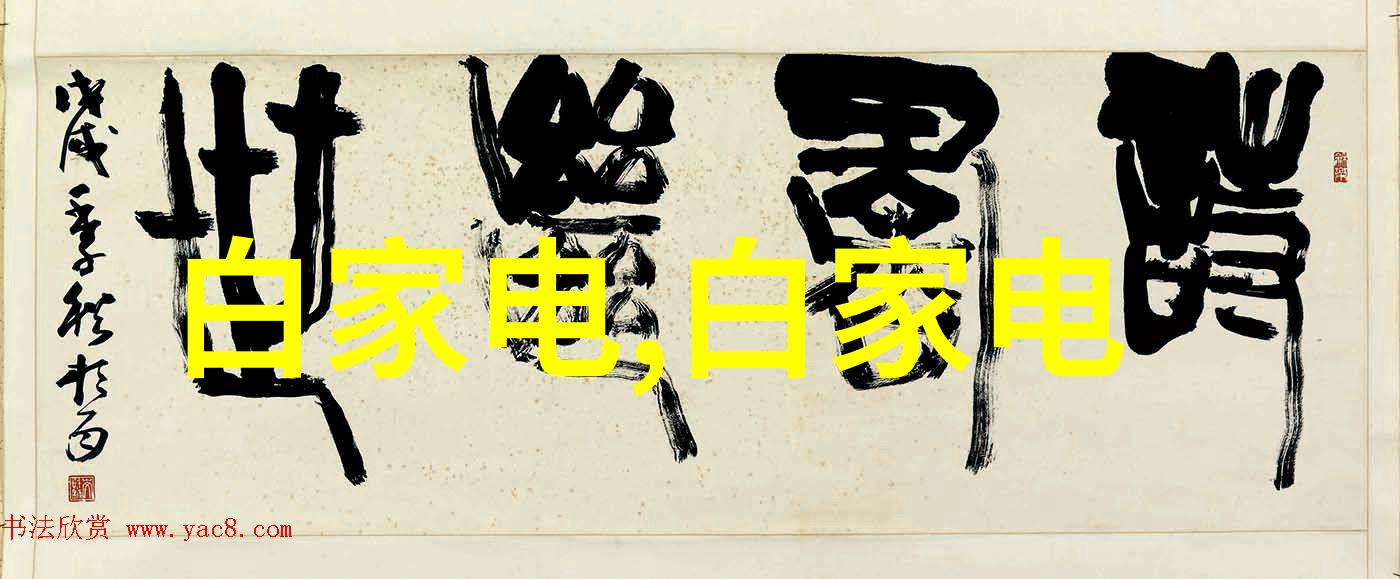 詩繼世
戊戌季秋
白家电,白家电
书法欣赏 www.yac8.com